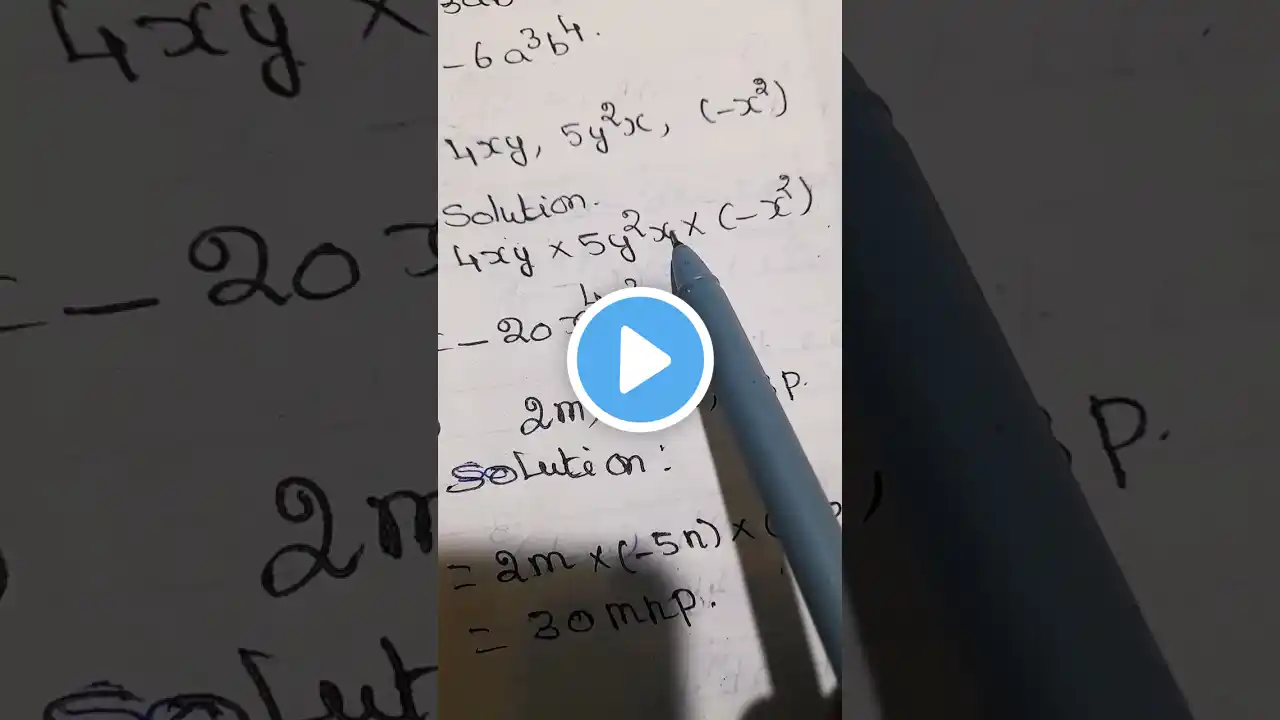 - 6a³b⁴.
4xy, 5y²x, (-x²)
Solution.
4xy × 5y²x × (-x²)
= - 20
2m, p.
Solution:
= 2m × (-5n) × (
= 30mnp.